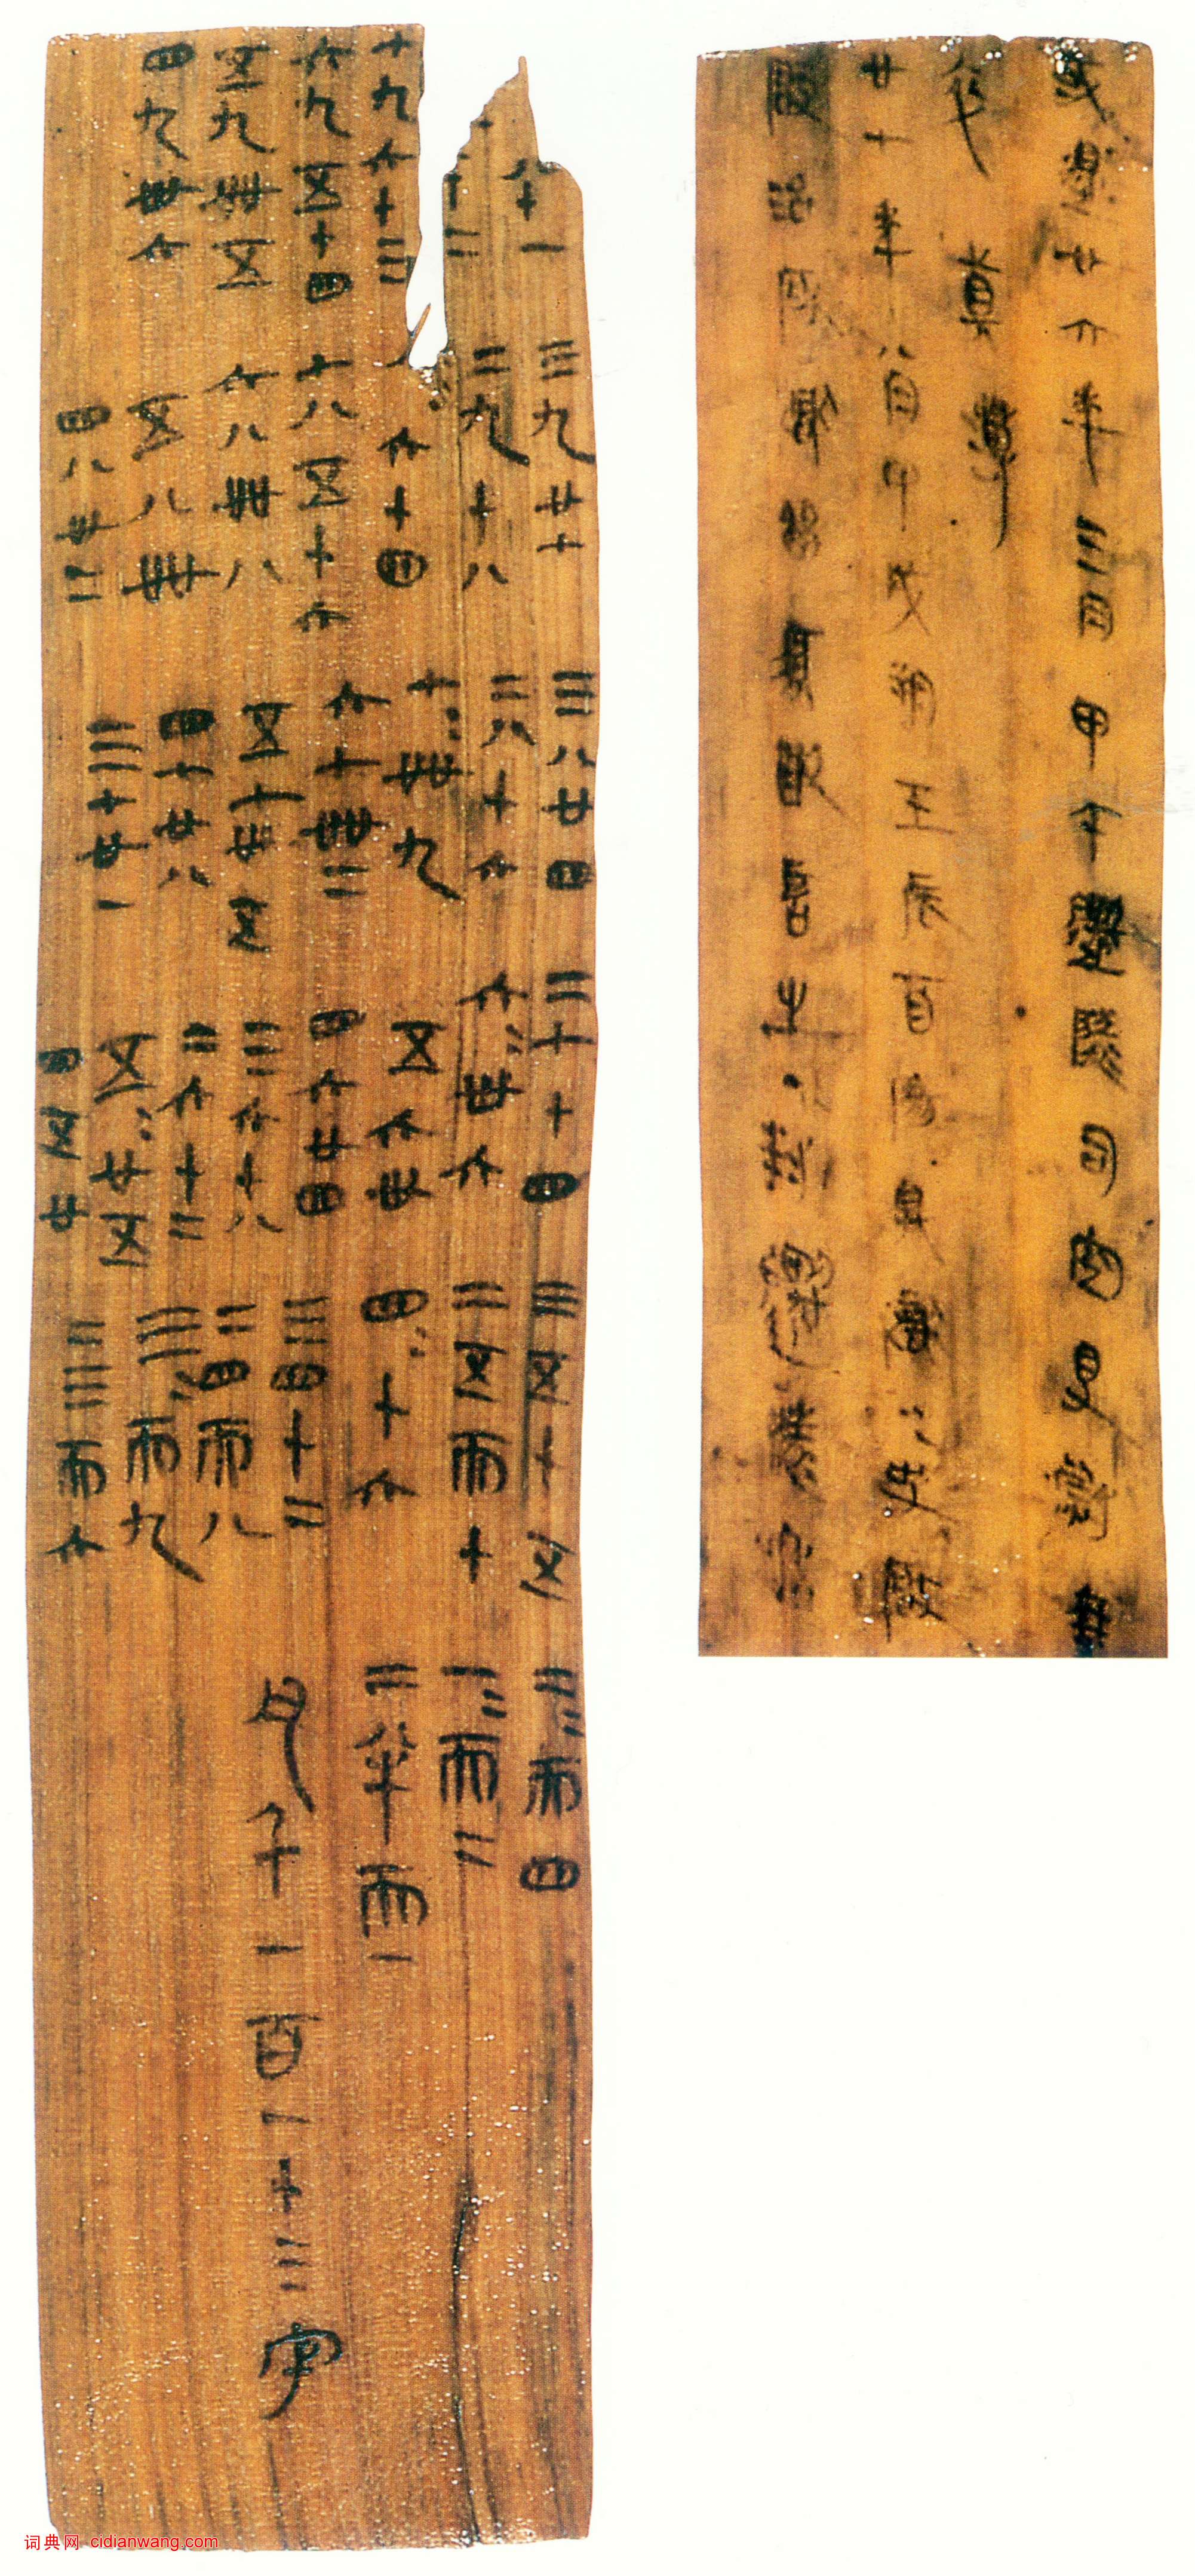 或遝廿六年三月甲午遷陵司空得尉乘
卒真薄
廿七年八月甲戌朔壬辰酉陽具獄〻史啓敢
啓治所獄留須敢言之·封遷陵丞
八十一
十二
七九六十三
六九五十四
五九卌五
四九卅六
三九廿七
二九十八
八〻六十四
七八五十六
六八卌八
五八卌
四八卅二
三八廿四
二八十六
七〻卌九
六七卌二
五七卅五
四七廿八
三七廿一
二七十四
六〻卅六
五六卅
四六廿四
三六十八
二六十二
五〻廿五
四五廿
三五十五
二五而十
四〻十六
三四十二
二四而八
三〻而九
二三而六
二〻而四
一〻而二
二半而一
凡千一百一十三字
词典网 cidianwang.com